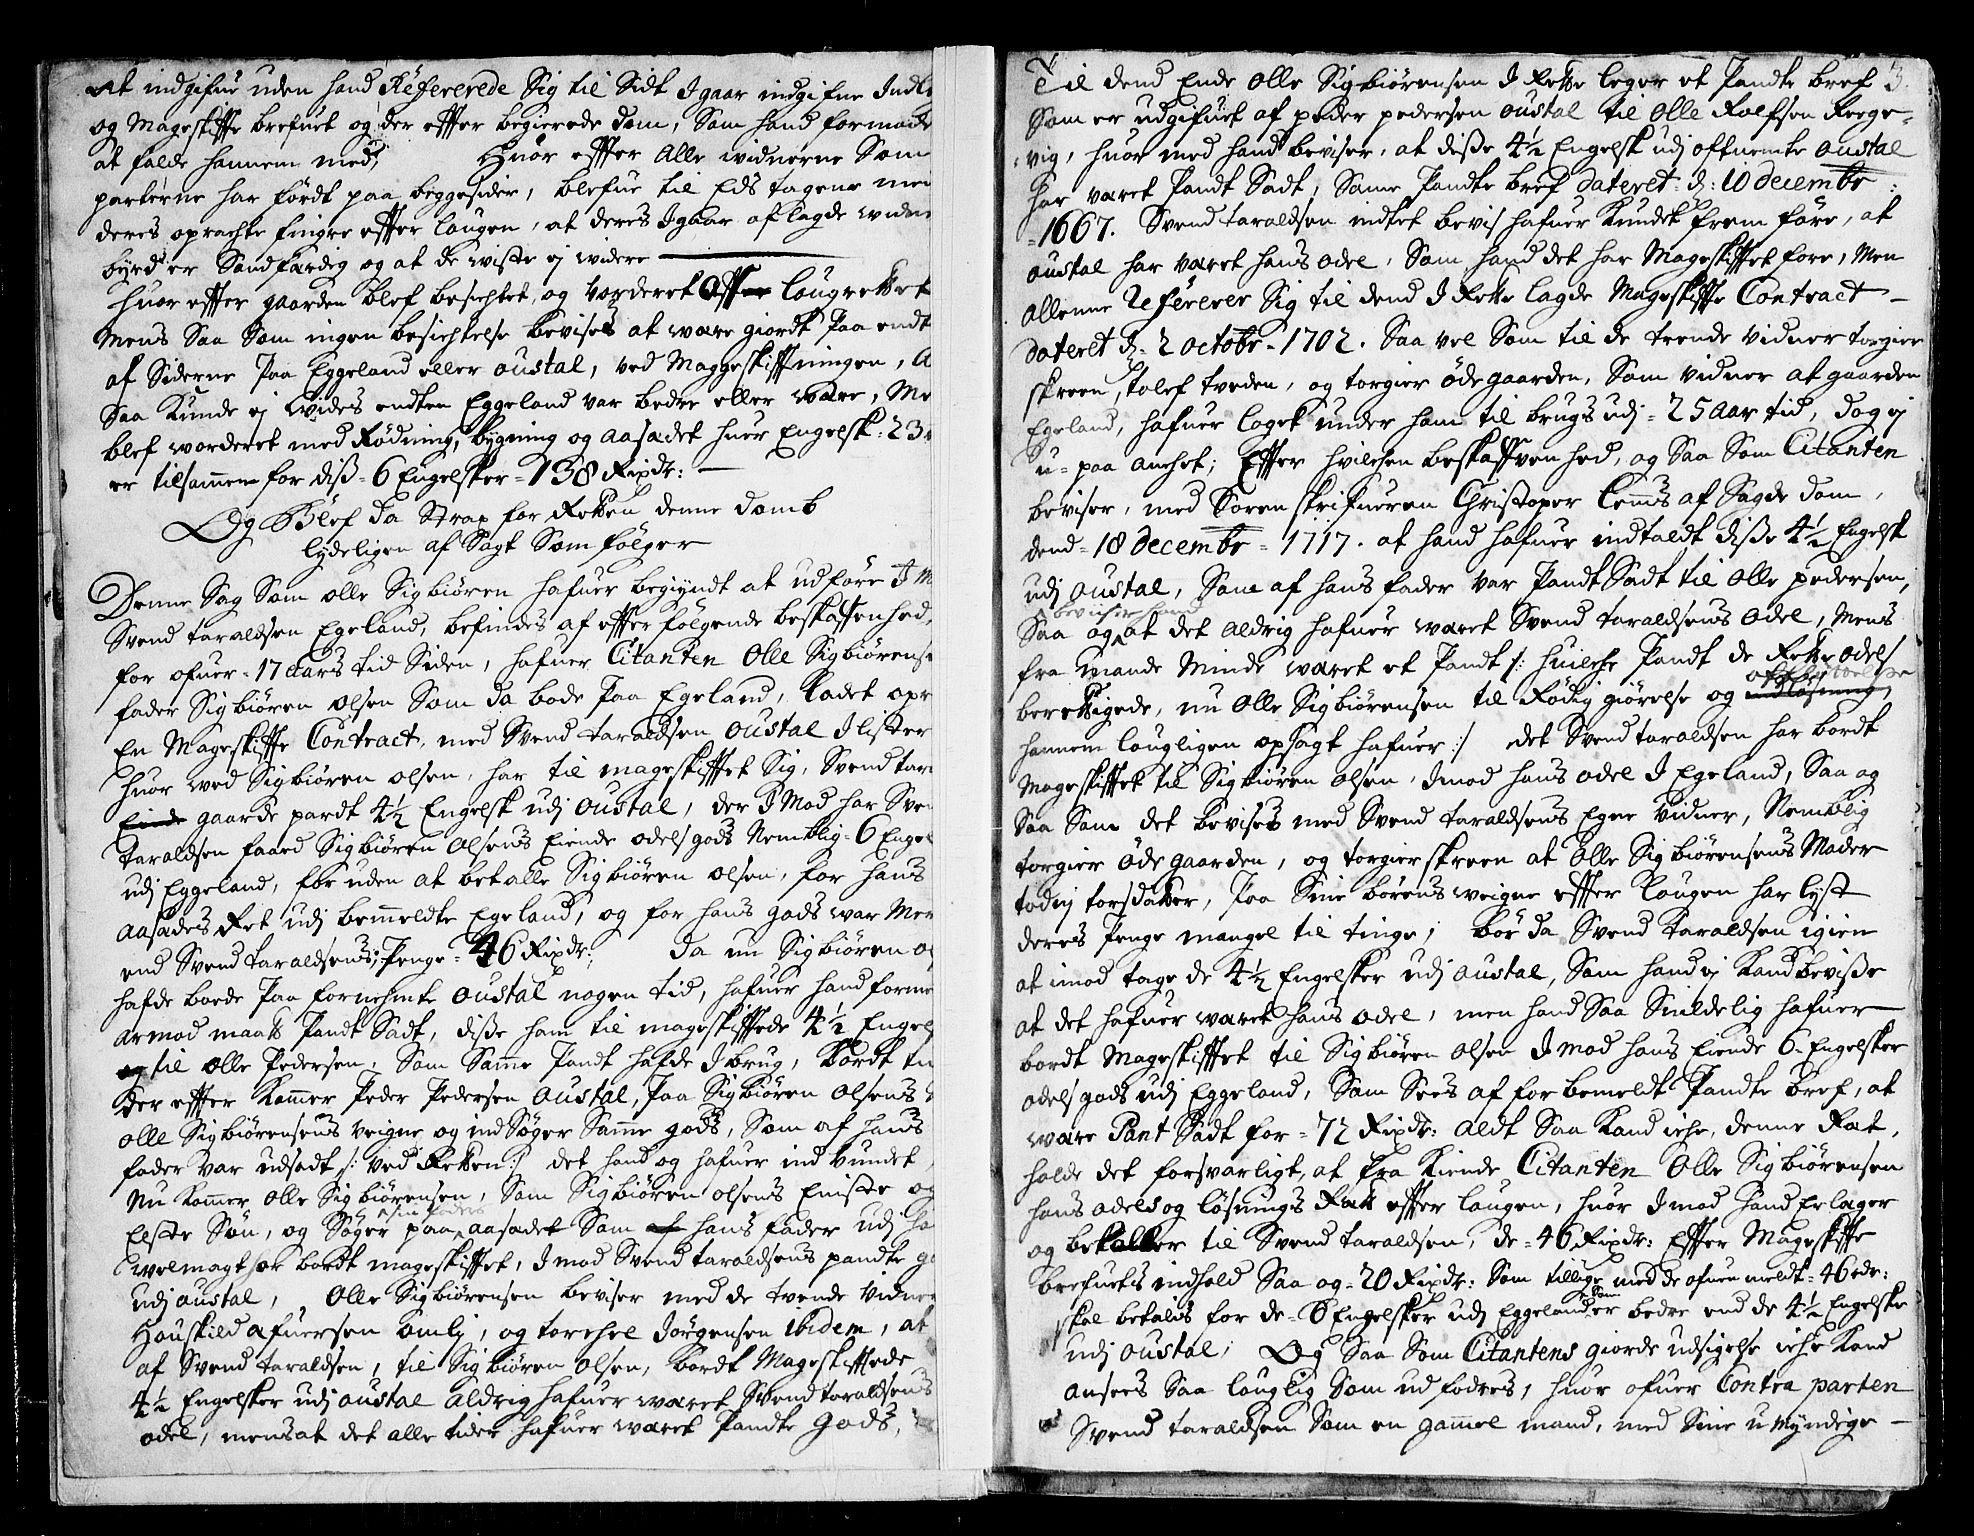 At indgifue uden hand Refererede Sig til Sidt Igaar indgifne Indl
og Mageskiffte brefuet og der effter begierede dom, Som hand formode
at falde hannem med; Huor effter Alle widnerne Som
parterne har fördt paa beggesider, blefue til Eds tagene med
deres oprachte fingre effter lougen, at deres Igaar aflagde widne
byrd er Sandfærdig og at de wiste ej widere
Huor effter gaarden blef besichtet og Vorderet lougrettet
Mens Saa Som ingen besichtelse bevises at være giordt Paa endt
af Siderne Paa Eggeland eller oustal, ved Maggeskifftningen, A
Saa Kunde ej Wides endten Eggeland var bedre eller være, Me
blef worderet med Rödning, bygning og aasædet huer Engelsk: 23
er tilsammen for diss - 6 Engelsker - 138 Rixdr: —
Og Blef da Strax for Retten denne domb
lydeligen af Sagt Som fölger
Denne Sag Som olle Sigbiören hafuer begÿndt at udföre I M
Svend taraldsen Egeland, befindes af effterfölgende beskaffenhed,
for ofuer - 17 Aars tid Siden, hafuer Citanten Olle Sigbiörense
fader Sigbiören olsen Som da bode Paa Egeland, ladet opr
En Mageskiffte Contract, med Svend taraldsen oustal I lister
Huor ved Sigbiören olsen, har til mageskifftet Sig, Svend tar
gaarde pardt 4½ Engelsk udj oustal, der I Mod har Sven
Taraldsen faaed Sigbiören olsens Eiende odels gods Nemblig - 6 Engel
udj Eggeland, for uden at betalle Sigbiören olsen, for hans
aasædes Ret udj bemeldte Egeland, og for hans gods war Mer
end Svend taraldsens; Penge - 46 Rixdr: Da nu Sigbiören ol
hafde boede Paa fornefnte oustal nogen tid, hafuer hand forme
armod maat Pandt Sadt, disse ham til mageskifftede 4½ Engel
til olle Pedersen, Som Samme Pandt hafde I brug,
der effter Kommer Peder Pedersen oustal, Paa Sigbiören Olsens
olle Sigbiörensens veigne og indSöger Samme gods, Som af hans
fader var udsadt /: ved Retten :/ det hand og hafuer ind Vundet
Nu Kommer Olle Sigbiörensen, Som Sigbiören olsens Eniste og
Elste Sön, og Söger paa sin faders aasædet Som hans fader udj
welmagt har bordt mageskifftet, I mod Svend taraldsens pandte g
udj oustal, Olle Sigbiörensen beviser med de tvende Vidner
Houskild afuersen omlj, og torchel Jörgensen ibidem, at
af Svend taraldsen, til Sigbiören olsen, bordt Mageskifftede
4½ Engelsker udj oustal aldrig hafuer været Svend taraldsens
odel, mens at det alle tider hafuer wæret Pandte gods,
Til dend Ende Olle Sigbiörensen I Rette leger et Pandte bref 3.
Som er udgifuet af peder pedersen oustal til Olle Rolfsen Reege-
vig, huor med hand beviser, at disse 4½ Engelsk udj oftnemte oustal
har været Pandt Sadt, Same Pandte bref dateret d: 10 decembr:
1667. Svend taraldsen indtet bevis hafuer Kundet frem före, at
oustal har været hans odel, Som hand det har Mageskifftet fore, Men
allenne Refererer Sig til dend I Rette lagde Mageskiffte Contract —
dateret d: 2 octobr - 1702. Saa vel Som til de trende Vidner torgier
skreen, tolef tveden, og torgier ödegaarden, Som Vidner at gaarden
Egeland, hafuer laget under ham til brugs udj - 25 Aar tid, dog ej
u-paa anchet; Effter hvilchen beskaffvenhed, og Saa Som Citanten
beviser, med Sorenskrifueren Christoper Lemis af Sagde dom,
dend - 18 decembr - 1717. at hand hafuer indtaldt disse 4½ Engelsk
udj oustal, Som af hans fader var Pandt Sadt til Olle pedersen,
Saa og beviser hand at det aldrig hafuer wæret Svend taraldsens odel, Mens
fra Mands Minde wæret et Pandt /: huilche Pandt de Rette odels
berettigede, nu Olle Sigbiörensen til Rödig giörelse og
hannem lougligen opsagt hafuer :/ det Svend taraldsen har bordt
Mageskifftet til Sigbiören olsen, I mod hans odel I Egeland, Saa og
Saa Som det bevises med Svend taraldsens Egne Vidner, Nemblig
torgier ödegaarden, og torgier skreen at Olle Sigbiörensens Moder
todij torsdatter, Paa Sine börens weigne effter lougen har lyst
deres Penge mangel til tinge; bör da Svend taraldsen igien
at imod tage de 4½ Engelsker udj oustal, Som hand ej Kand bevisse
at det hafuer wæret hans odel, men hand Saa Snildelig hafuer
bordt Mageskifftet til Sigbiören olsen I mod hans Eiende 6 - Engelsker
odels gods udj Eggeland, Som Sees af for bemeldt Pandte bref, at
være Pant Sadt for - 72 Rixdr: aldt Saa Kand iche, denne Ret,
holde det forsvarligt, at fra Kiende Citanten Olle Sigbiörensen
hans odels og lösnings Ret effter lougen, huor I mod hand Erlæger
og betaller til Svend taraldsen, de - 46 Rixdr: Effter Mageskiffte
brefuets indhold Saa og - 20 Rixdr: Som tillige med de ofuen meldt - 46 rdr:
skal betalis for de - 6 Engelsker udj Eggeland Som er bedre end de 4½ Engelske
udj oustal; Og Saa Som Citantens giorde udsigelse iche Kand
ansees Saa louglig Som ud fodres, huor ofuer Contra parten
Svend taraldsen Som en gammel mand, med Sine u Myndige —